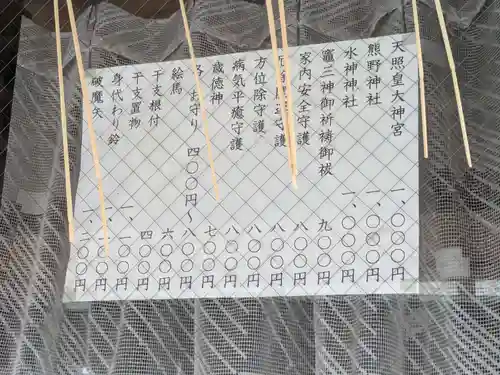 天照皇大神宮 一、〇〇〇円
熊野神社 一、〇〇〇円
水神神社 一、〇〇〇円
竈三神御祈祷御祓 九〇〇円
家内安全守護 八〇〇円
守護 八〇〇円
方位除守護 八〇〇円
病気平癒守護 八〇〇円
歳徳神 七〇〇円
お守り 四〇〇円〜
絵馬 八〇〇円
干支根付 六〇〇円
干支置物 四〇〇円
身代わり鈴 一、〇〇〇円
破魔矢 一、〇〇〇円